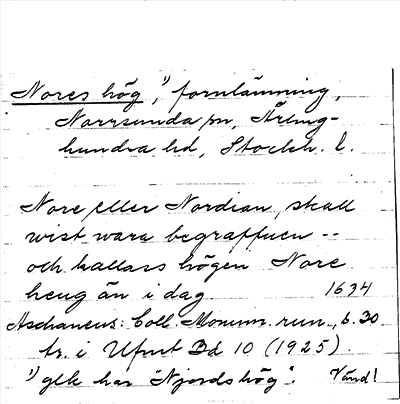 Nores hög ¹), fornlämning,
Norrsunda sn, Ärling-
hundra hd, Stockh. l.
Nore eller Nordian, skall
wist wara begraffuen --
och kallass högen Nore
heug än i dag. 1634
Aschaneus: Coll. Monum. run., b. 30
tr. i Ufmt Bd 10 (1925).
¹) glk har "Njords hög". Vänd!